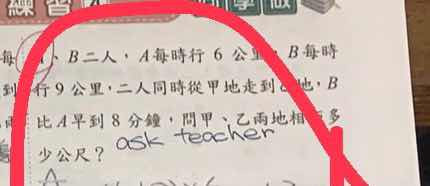 練習
同學做
每 A、B二人，A每時行 6 公里，B每時
到 行 9 公里，二人同時從甲地走到乙地，B
比 A 早到 8 分鐘，問甲、乙兩地相 多
少公尺？ ask teacher